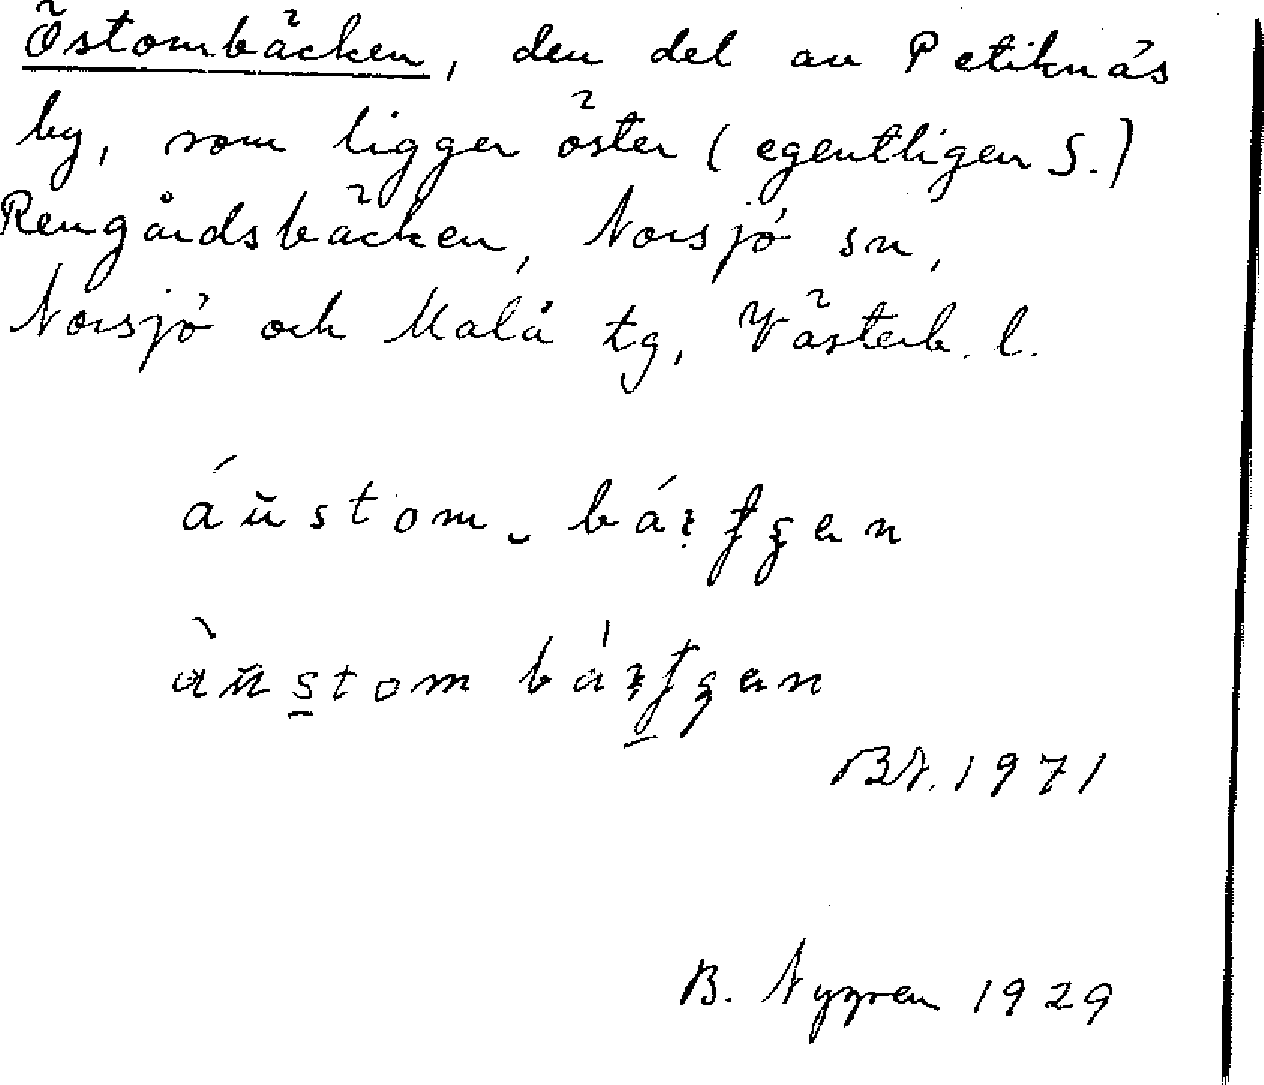 Östombäcken, den del av Petiknäs
by, som ligger öster (egentligen S.)
Rengårdsbäcken, Norsjö sn,
Norsjö och Malå tg, Västerb. l.
BN. 1971
B. Nygren 1929